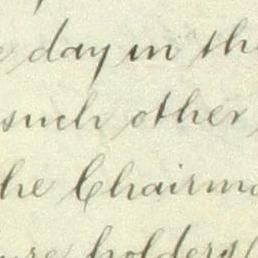 day in the
such other
the Chairma
ure holders